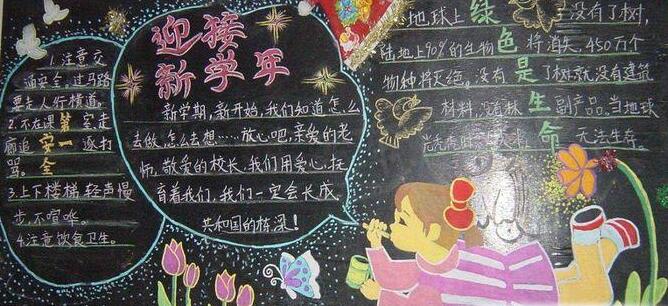 1.注意交
通安全,过马路
要走人行横道。
2.不在课第室走
廊追安一逐打
骂。全
3.上下楼梯轻声慢
步,不喧哗。
4.注意饮食卫生。
迎接
新学年
新学期,新开始,我们知道怎么
去做,怎么去想……放心吧,亲爱的老
师,敬爱的校长,我们用爱心,抚
育着我们,我们一定会长成
共和国的栋梁!
地球上绿没有了树,
陆地上90%的生物色将消失,450万个
物种将灭绝。没有是了树就没有建筑
材料,没有林生副产品。当地球
光秃命无法生存。